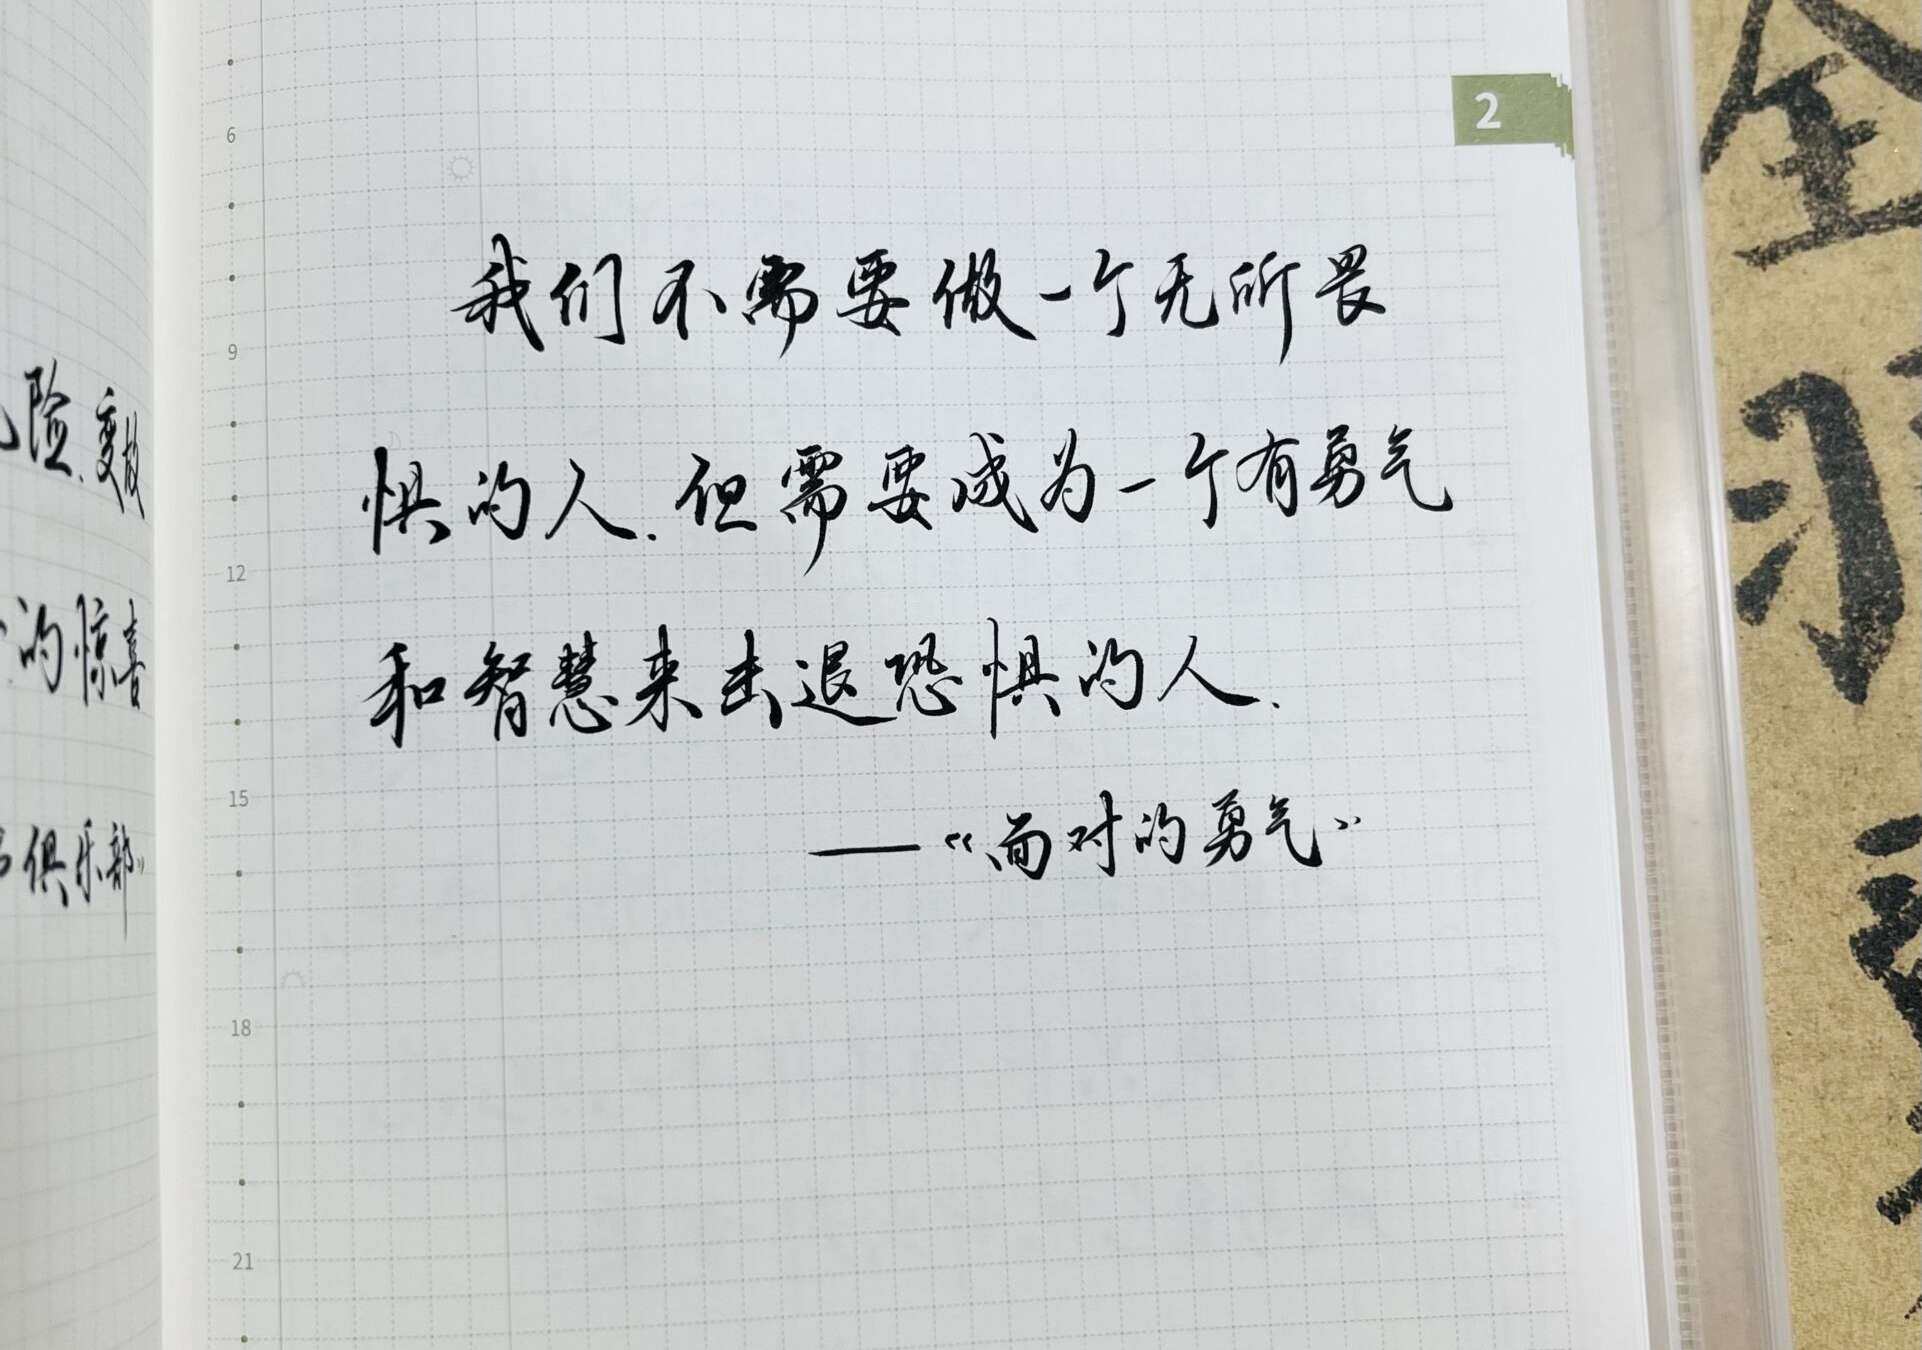 险、变故
的惊喜
俱乐部》
2
6
9
12
15
18
21
我们不需要做一个无所畏
惧的人.但需要成为一个有勇气
和智慧来击退恐惧的人.
——《面对的勇气》
全